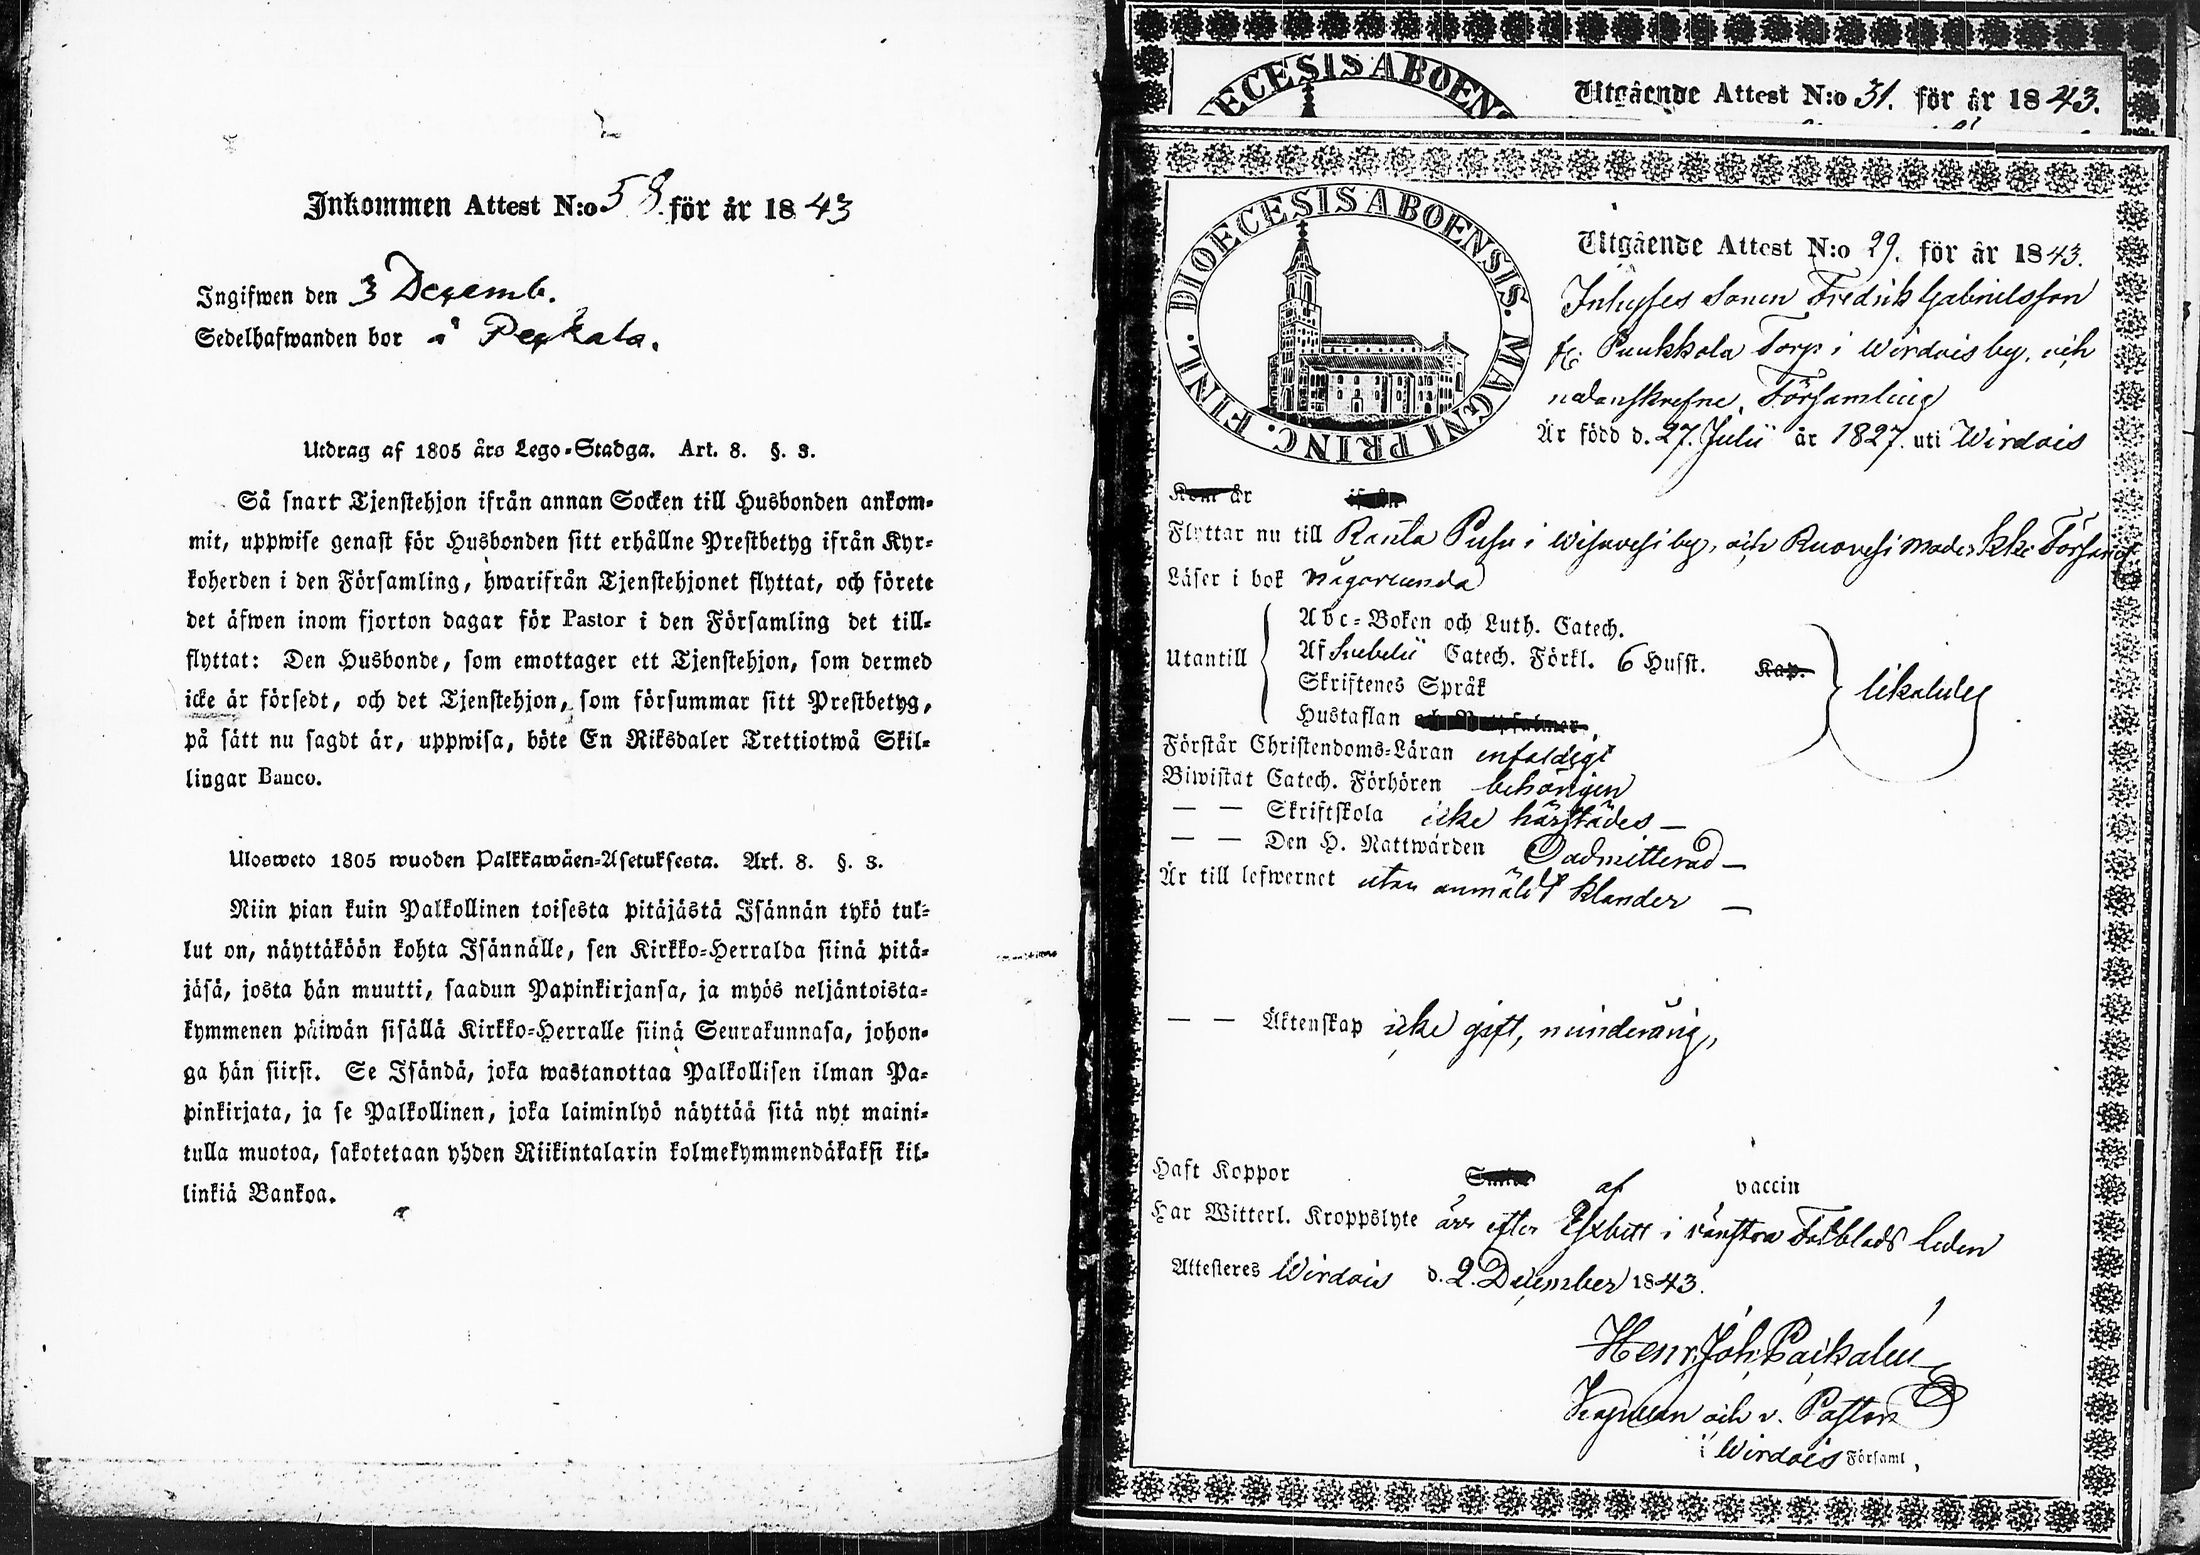 Inkommen Attest N:o 58. för år 1843
Ingifwen den 3 Decemb.
Sedelhafwanden bor å Peskala.
Utdrag af 1805 års Lego-Stadga. Art. 8. §. 3.
Så snart Tjenstehjon ifrån annan Socken till Husbonden ankom-
mit, uppwise genast för Husbonden sitt erhållne Prestbetyg ifrån Kyr-
koherden i den Församling, hwarifrån Tjenstehjonet flyttat, och förete
det äfwen inom fjorton dagar för Pastor i den Församling det till-
flyttat: Den Husbonde, som emottager ett Tjenstehjon, som dermed
icke är försedt, och det Tjenstehjon, som försummar sitt Prestbetyg,
på sätt nu sagdt är, uppwisa, böte En Riksdaler Trettiotwå Skil-
lingar Banco.
Ulosweto 1805 wuoden Palkkawäen-Asetuksesta. Art. 8. §. 3.
Niin pian kuin Palkollinen toisesta pitäjästä Isännän tykö tul-
lut on, näyttäköön kohta Isännälle, sen Kirkko-Herralda siinä pitä-
jäsä, josta hän muutti, saadun Papinkirjansa, ja myös neljäntoista-
kymmenen päiwän sisällä Kirkko-Herralle siinä Seurakunnasa, johon-
ga hän siirsi. Se Isändä, joka wastanottaa Palkollisen ilman Pa-
pinkirjata, ja se Palkollinen, joka laiminlyö näyttää sitä nyt maini-
tulla muotoa, sakotetaan yhden Riikintalarin kolmekymmendäkaksi kil-
linkiä Bankoa.
DIOECESIS ABOENS
Utgående Attest N:o 31. för år 1843.
DIOECESIS ABOENSIS. MAGNI PRINC. FINL.
Utgående Attest N:o 29. för år 1843.
Inhyses Sonen Fredrik Gabrielsson
fr. Puukkola Torp i Wirdois by, och
nedanskrefne Församling
Är född d. 27. Julii år 1827. uti Wirdois
Kom år ifrån
Flyttar nu till Ranta Pusu i Wisuvesi by, och Ruovesi Moder kke Församl
Läser i bok någorlunda
Abc-Boken och Luth. Catech.
Utantill
Af Svebelii Catech. Förkl. 6 Husst. Kap.
Skriftenes Språk
likaledes
Hustaflan
Förstår Christendoms-Läran enfaldigt
Biwistat Catech. Förhören behörigen
— — Skriftskola icke härstädes —
— — Den H. Nattwarden Oadmitterad —
Är till lefwernet utan anmäldt klander —
— — Äktenskap icke gift, minderårig,
Haft Koppor af vaccin
Har Witterl. Kroppslyte ärr efter i vänstra leden
Attesteres Wirdois d. 2. December 1843.
Henr. Joh.
Kapellan och v. Pastor
i Wirdois Församl,